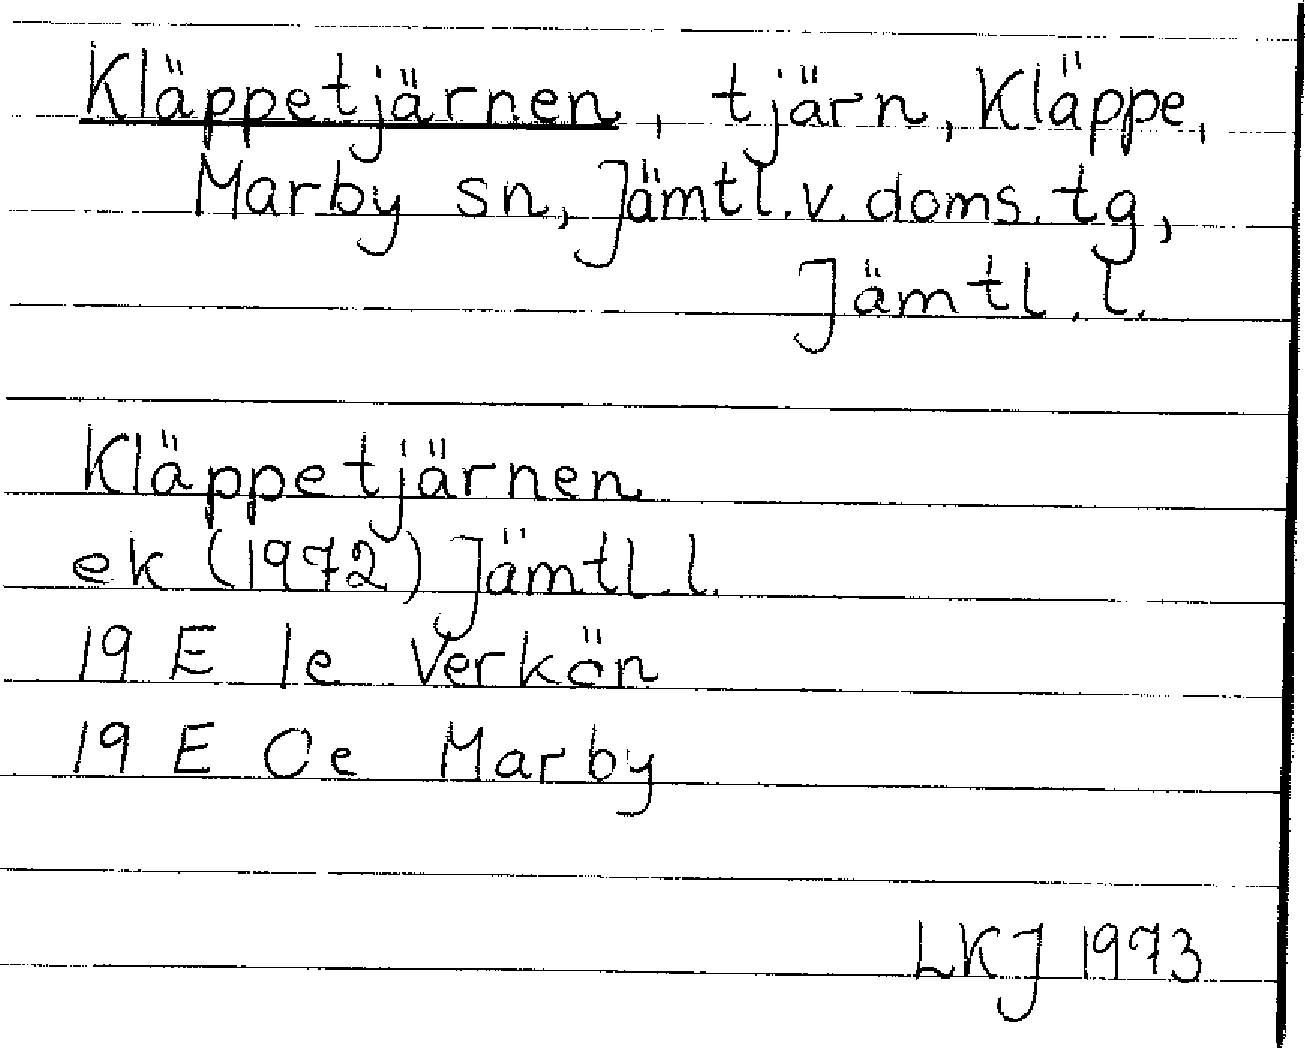 Kläppetjärnen, tjärn, Kläppe,
Marby sn, Jämtl. v. doms. tg,
Jämtl. l.
Kläppetjärnen
ek (1972) Jämtl. l.
19 E 1e Verkön
19 E 0e Marby
LKJ 1973